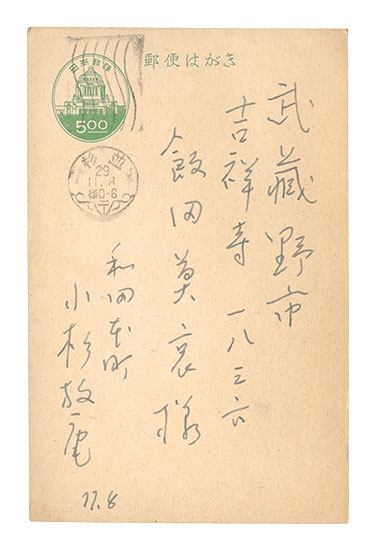 郵便はがき
日本郵便
5.00
杉並
29
11.8
後0-6
武蔵野市
吉祥寺一八三六
飯田莫哀様
和田本町
小杉放庵
11.8